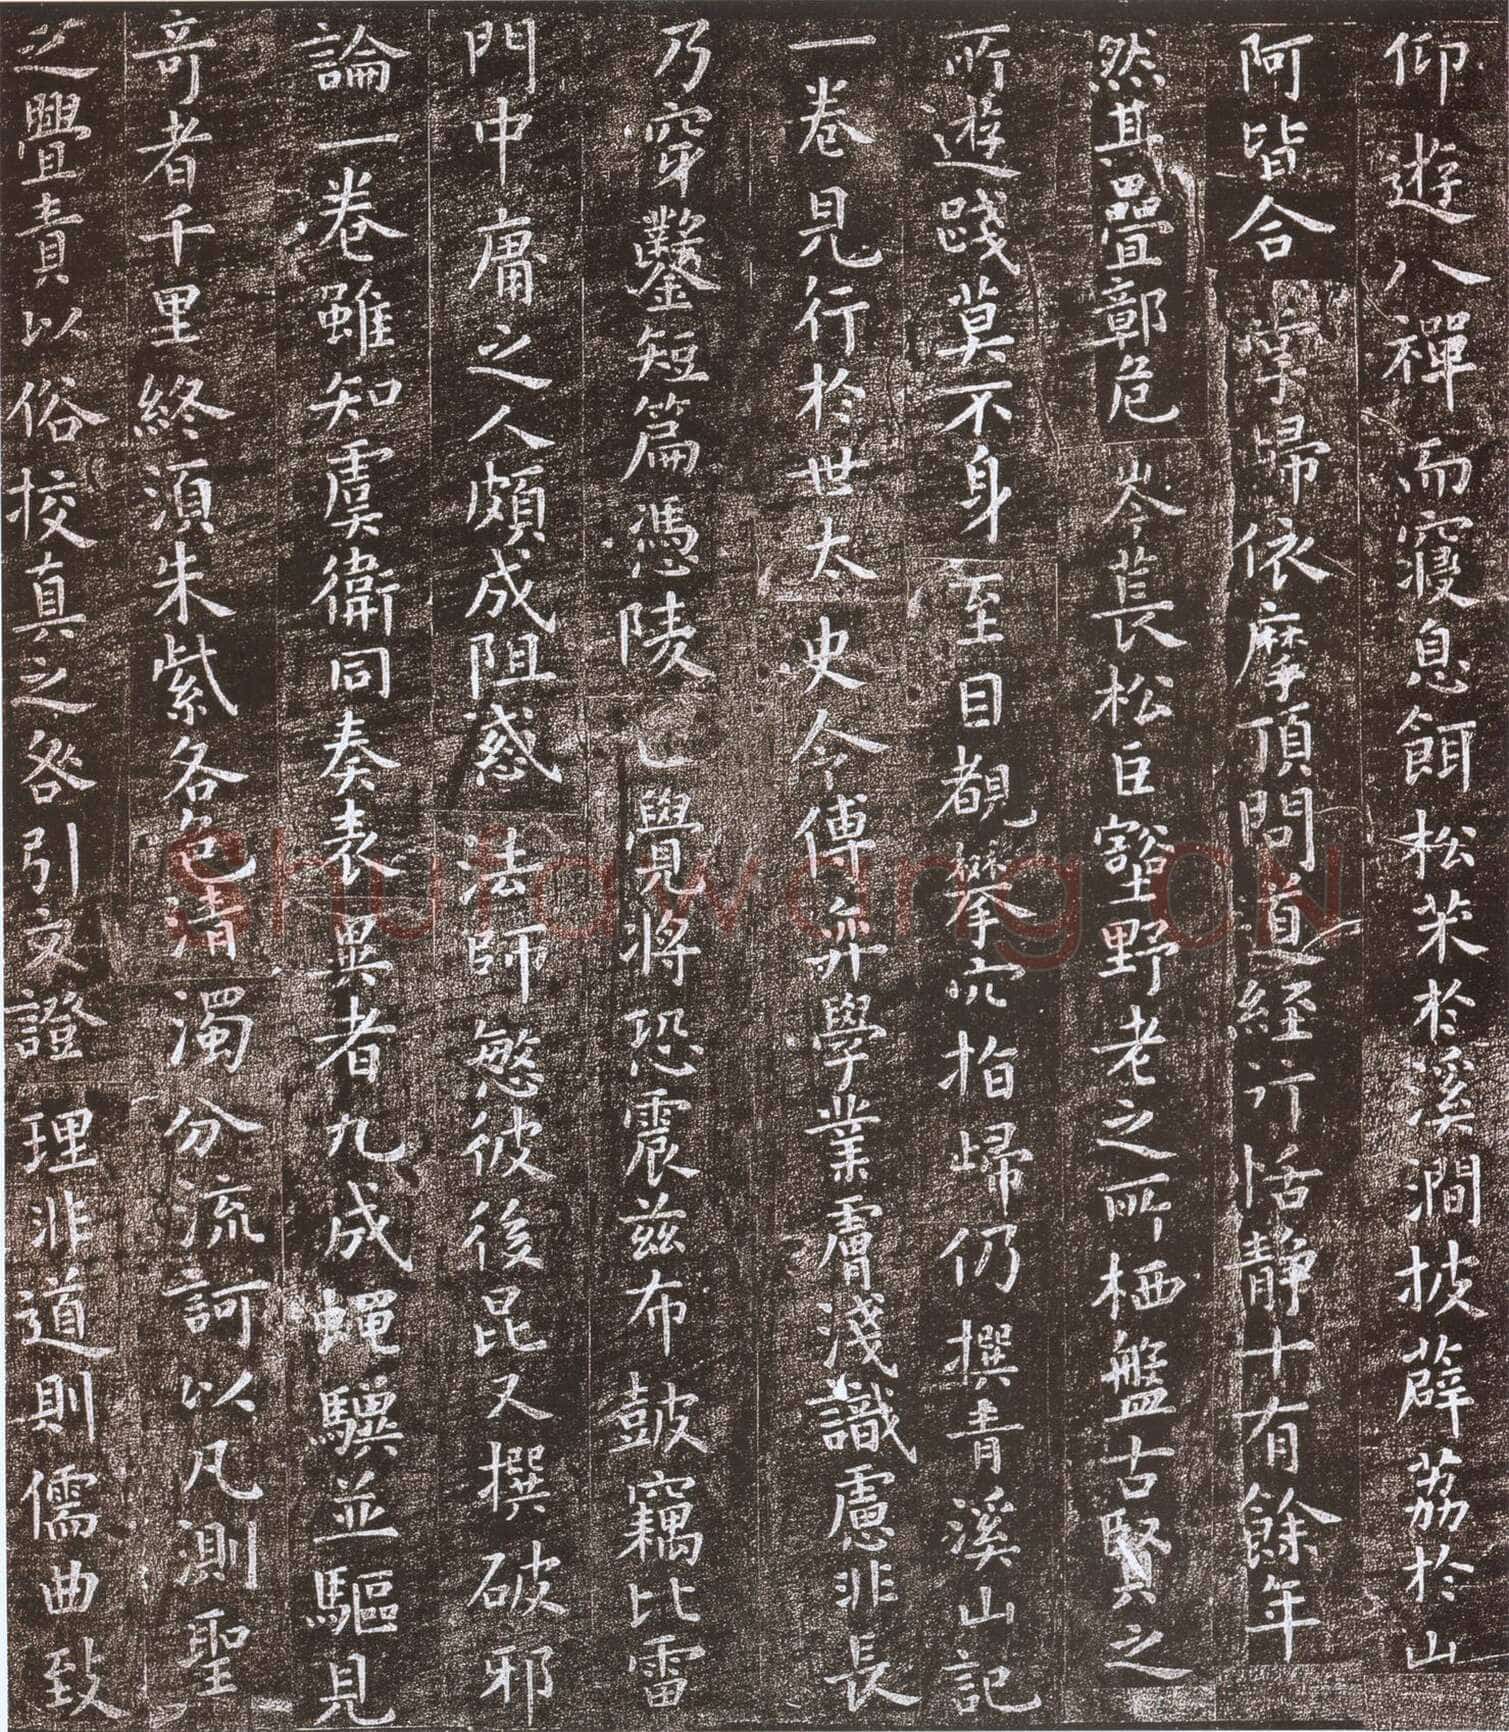 仰遊八禪而寢息餌松朮於溪澗披薜荔於山
阿皆合掌歸依摩頂問道經行恬靜十有餘年
然其疊嶂危岑長松巨壑野老之所栖盤古賢之
所遊踐莫不身至目覩攀穴指歸仍撰青溪山記
一卷見行於世太史令傅弈學業膚淺識慮非長
乃穿鑿短篇憑陵正覺將恐震茲布鼓竊比雷
門中庸之人頗成阻惑法師慜彼後昆又撰破邪
論一卷雖知虞衛同奏表異者九成蠅驥並驅見
奇者千里終須朱紫各色清濁分流訶以凡測聖
之舋責以俗挍真之咎引文證理非道則儒曲致
Shufawang.CN